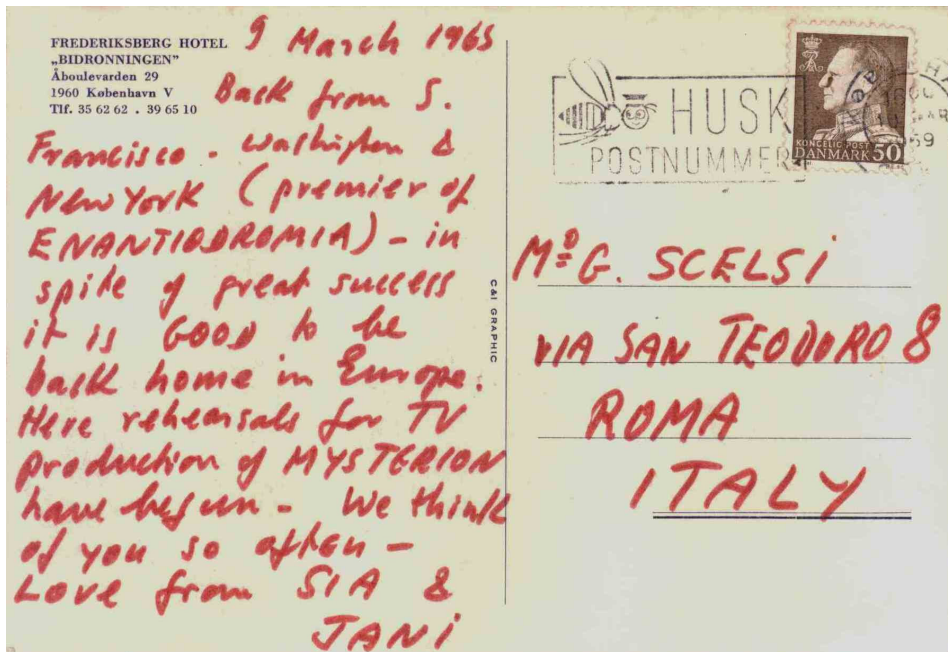 FREDERIKSBERG HOTEL
„BIDRONNINGEN”
Åboulevarden 29
1960 København V
Tlf. 35 62 62 . 39 65 10
9 March 1969
Back from S.
Francisco - Washington &
New York (premier of
ENANTIODROMIA) - in
spite of great success
it is GOOD to be
back home in Europe.
Here rehearsals for TV
production of MYSTERION
have begun - We think
of you so often -
Love from SIA &
JANI
C&I GRAPHIC
HUSK
POSTNUMMER
KONGELIG POST
DANMARK 50
Mº G. SCELSI
VIA SAN TEODORO 8
ROMA
ITALY